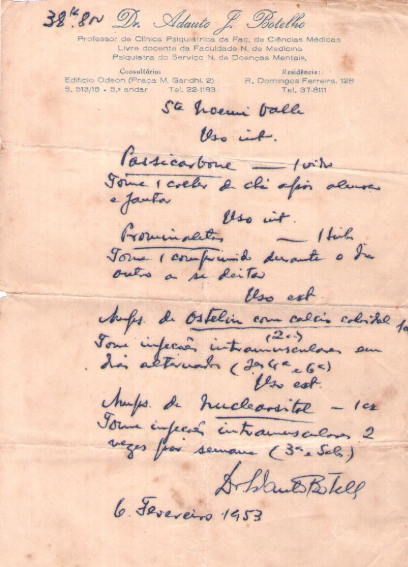 38 kg 800
Dr. Adauto J. Botelho
Professor de Clínica Psiquiátrica da Fac. de Ciências Médicas
Livre docente da Faculdade N. de Medicina
Psiquiatra do Serviço N. de Doenças Mentais,
Consultório Residência:
Edifício Odeon (Praça M. Gandhi, 2) R. Domingos Ferreira, 128
S. 513/15 - 5.º andar Tel. 22-1193 Tel. 37-8111
Noemi Valle
Uso int.
Passicarbone — 1 vidro
Tome 1 colher de chá após almoço
e jantar
Uso int.
Prominaletas — 1 tubo
Tome 1 comprimido durante o dia
outro ao se deitar
Uso ext
Amps. de Ostelin com calcio coloidal 1 cx
(2cc)
Tome injeções intramusculares em
dias alternados (2as 4as e 6as)
Uso ext.
Amps. de Nucleositol — 1 cx
Tome injeções intramusculares 2
vezes por semana (3as e Sab.)
Dr Adauto Botelho
6. Fevereiro 1953